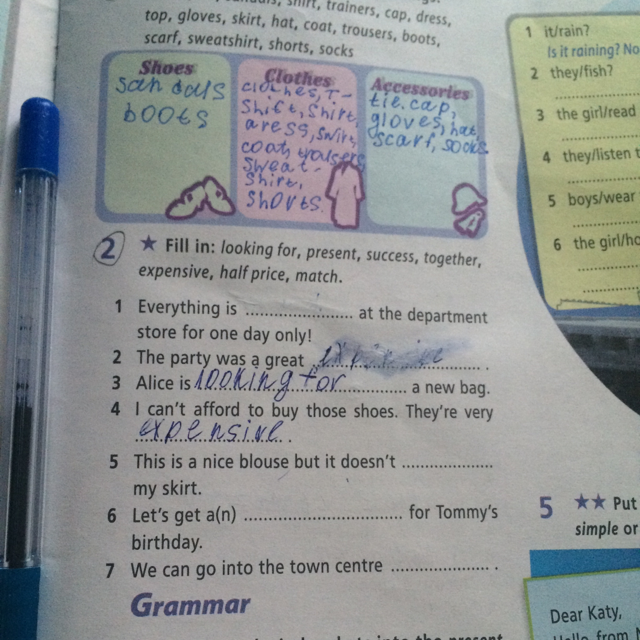 trainers, cap, dress,
top, gloves, skirt, hat, coat, trousers, boots,
scarf, sweatshirt, shorts, socks
Shoes
sandals
boots
Clothes
clothes, T-
Shirt, Shirt,
coat, trousers
Sweat-
Shirt,
Shorts.
Accessories
tie. cap,
gloves, hat,
scarf, socks
2 ★ Fill in: looking for, present, success, together,
expensive, half price, match.
1 Everything is .................... at the department
store for one day only!
2 The party was a great .................... .
3 Alice is looking for .................... a new bag.
4 I can't afford to buy those shoes. They're very
expensive .
5 This is a nice blouse but it doesn't ....................
my skirt.
6 Let's get a(n) .................... for Tommy's
birthday.
7 We can go into the town centre .................... .
Grammar
1 it/rain?
Is it raining? No
2 they/fish?
3 the girl/read
4 they/listen t
5 boys/wear
6 the girl/ho
5 ★★ Put
simple or
Dear Katy,
Hello from